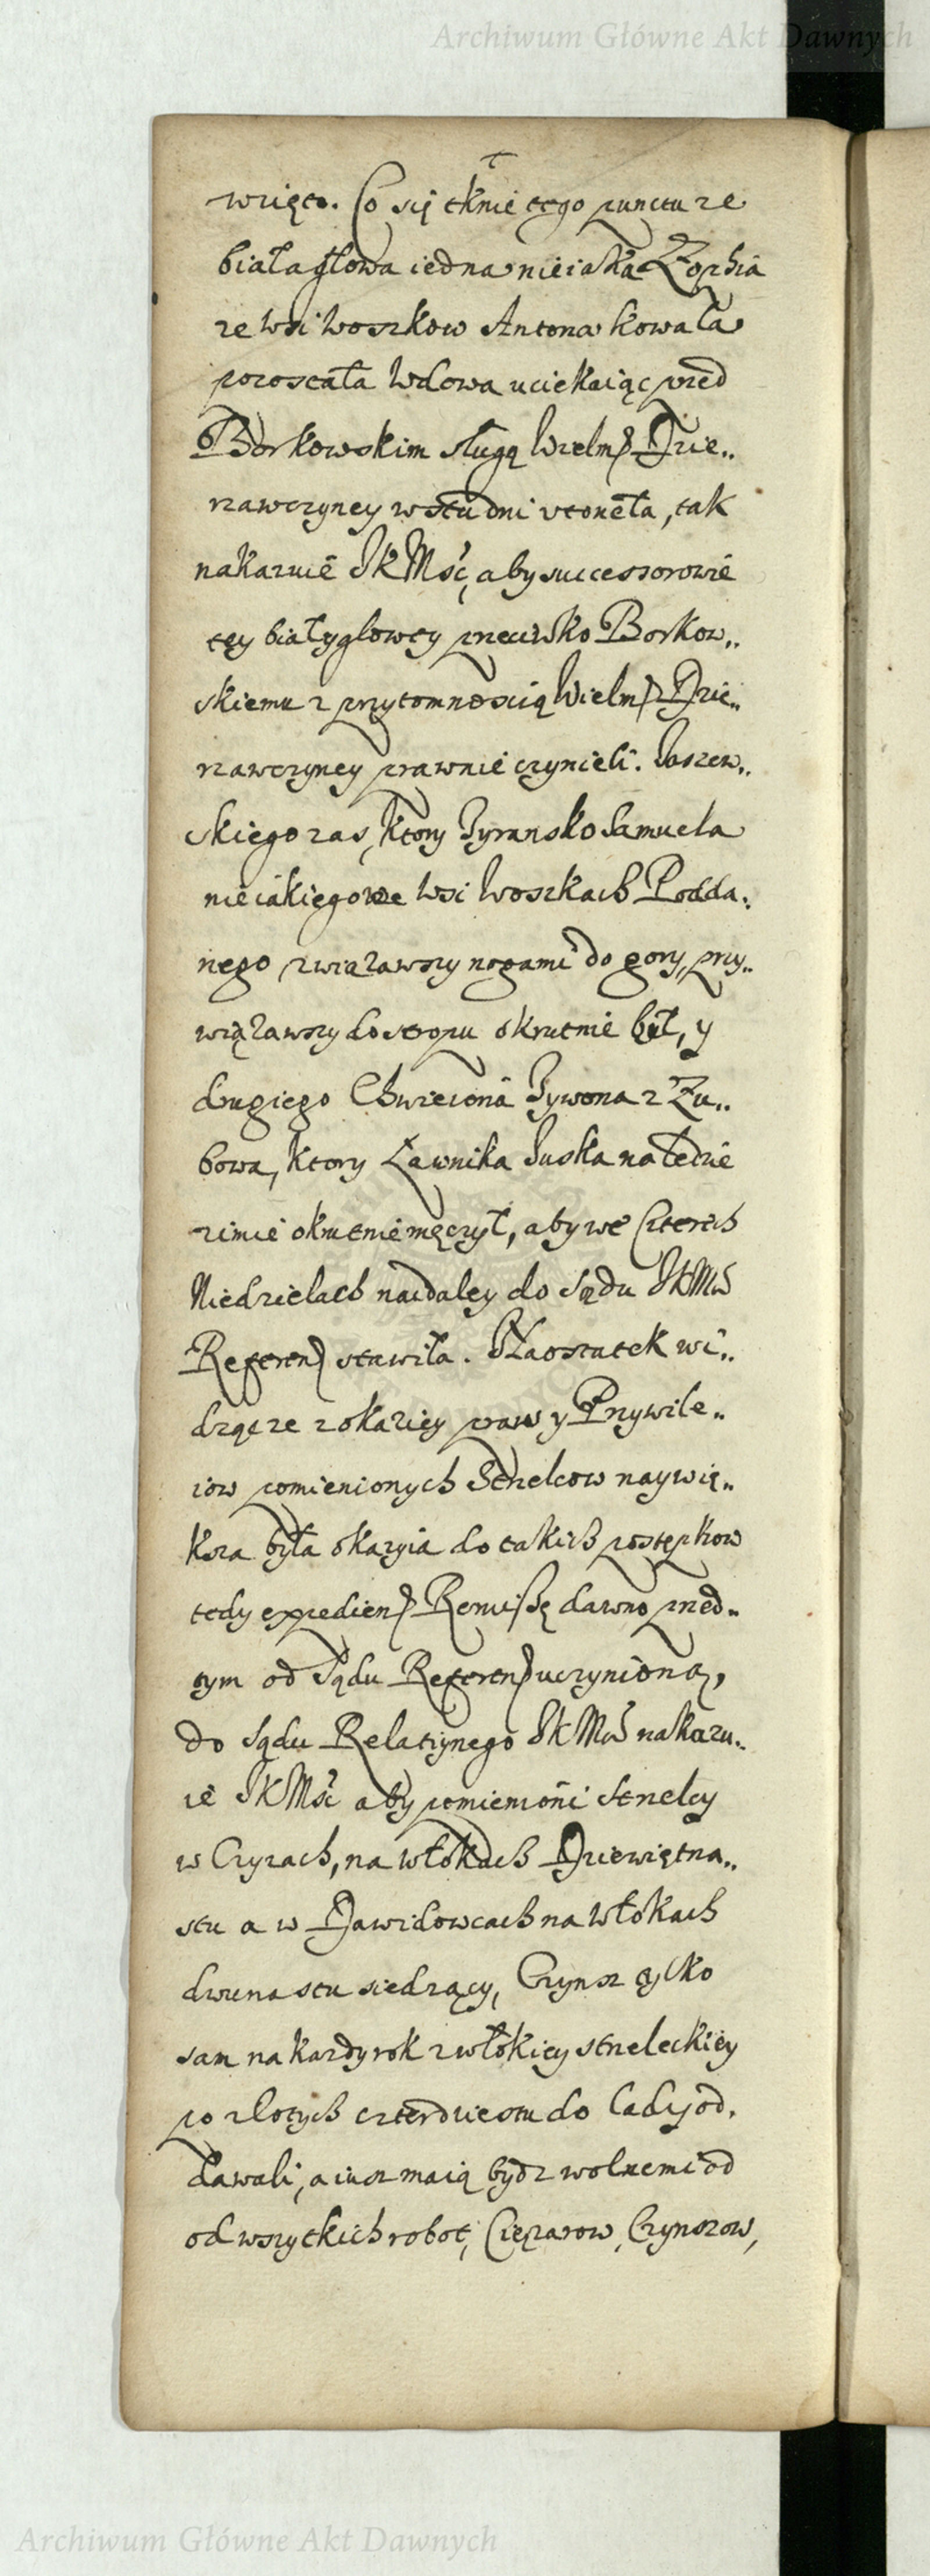 Archiwum Główne Akt Dawnych
wzięto. Co się tknie tego punctu ze
białagłowa iedna nieiaka Zophia
ze wsi Woszkow Antona kowala
pozostała Wdowa uciekaiąc przed
Borkowskim sługą Wielm: Dzie„
rzawczyney w studni utonęła, tak
nakazuie JKMść, aby successorowie
tey białygłowey przeciwko Borkow„
skiemu z przytomnością Wielm: Dzie„
rzawczyney prawnie czynieli.
skiego zas, ktory Tyransko Samuela
nieiakiego ze Wsi Woszkach Podda„
nego zwiazawszy nogami do gory, przy„
wiązawszy do stropu okrutnie bił, y
drugiego Chwiedona Iywona z Zu„
bowa, ktory Ławnika Juska na ledzie
zimie okrutnie męczył, aby we Czterech
Niedzielach naidaley do Sądu JKMśći
Referen: stawiła. Naostatek wi„
dząc ze z okaziey praw y Przywile„
iow pomienionych Strzelcow naywię„
ksza była okazyia do takich postępkow
tedy expedien: Remissę dawno przed„
tym od Sądu Referen: uczynioną,
do Sądu Relatiynego JKMśći nakazu„
ie JKMść aby pomienioni Strzelcy
w Czyzach, na włokach Dziewiętna„
stu a w Dawidowcach na Włokach
dwunastu siedzący, Czynsz tylko
sam na kazdy rok z włokiey strzeleckiey
po złotych czterdziestu do
dawali, a iusz maią bydz wolnemi od
od wszytkich robot, Cięzarow, Czynszow,
Archiwum Główne Akt Dawnych